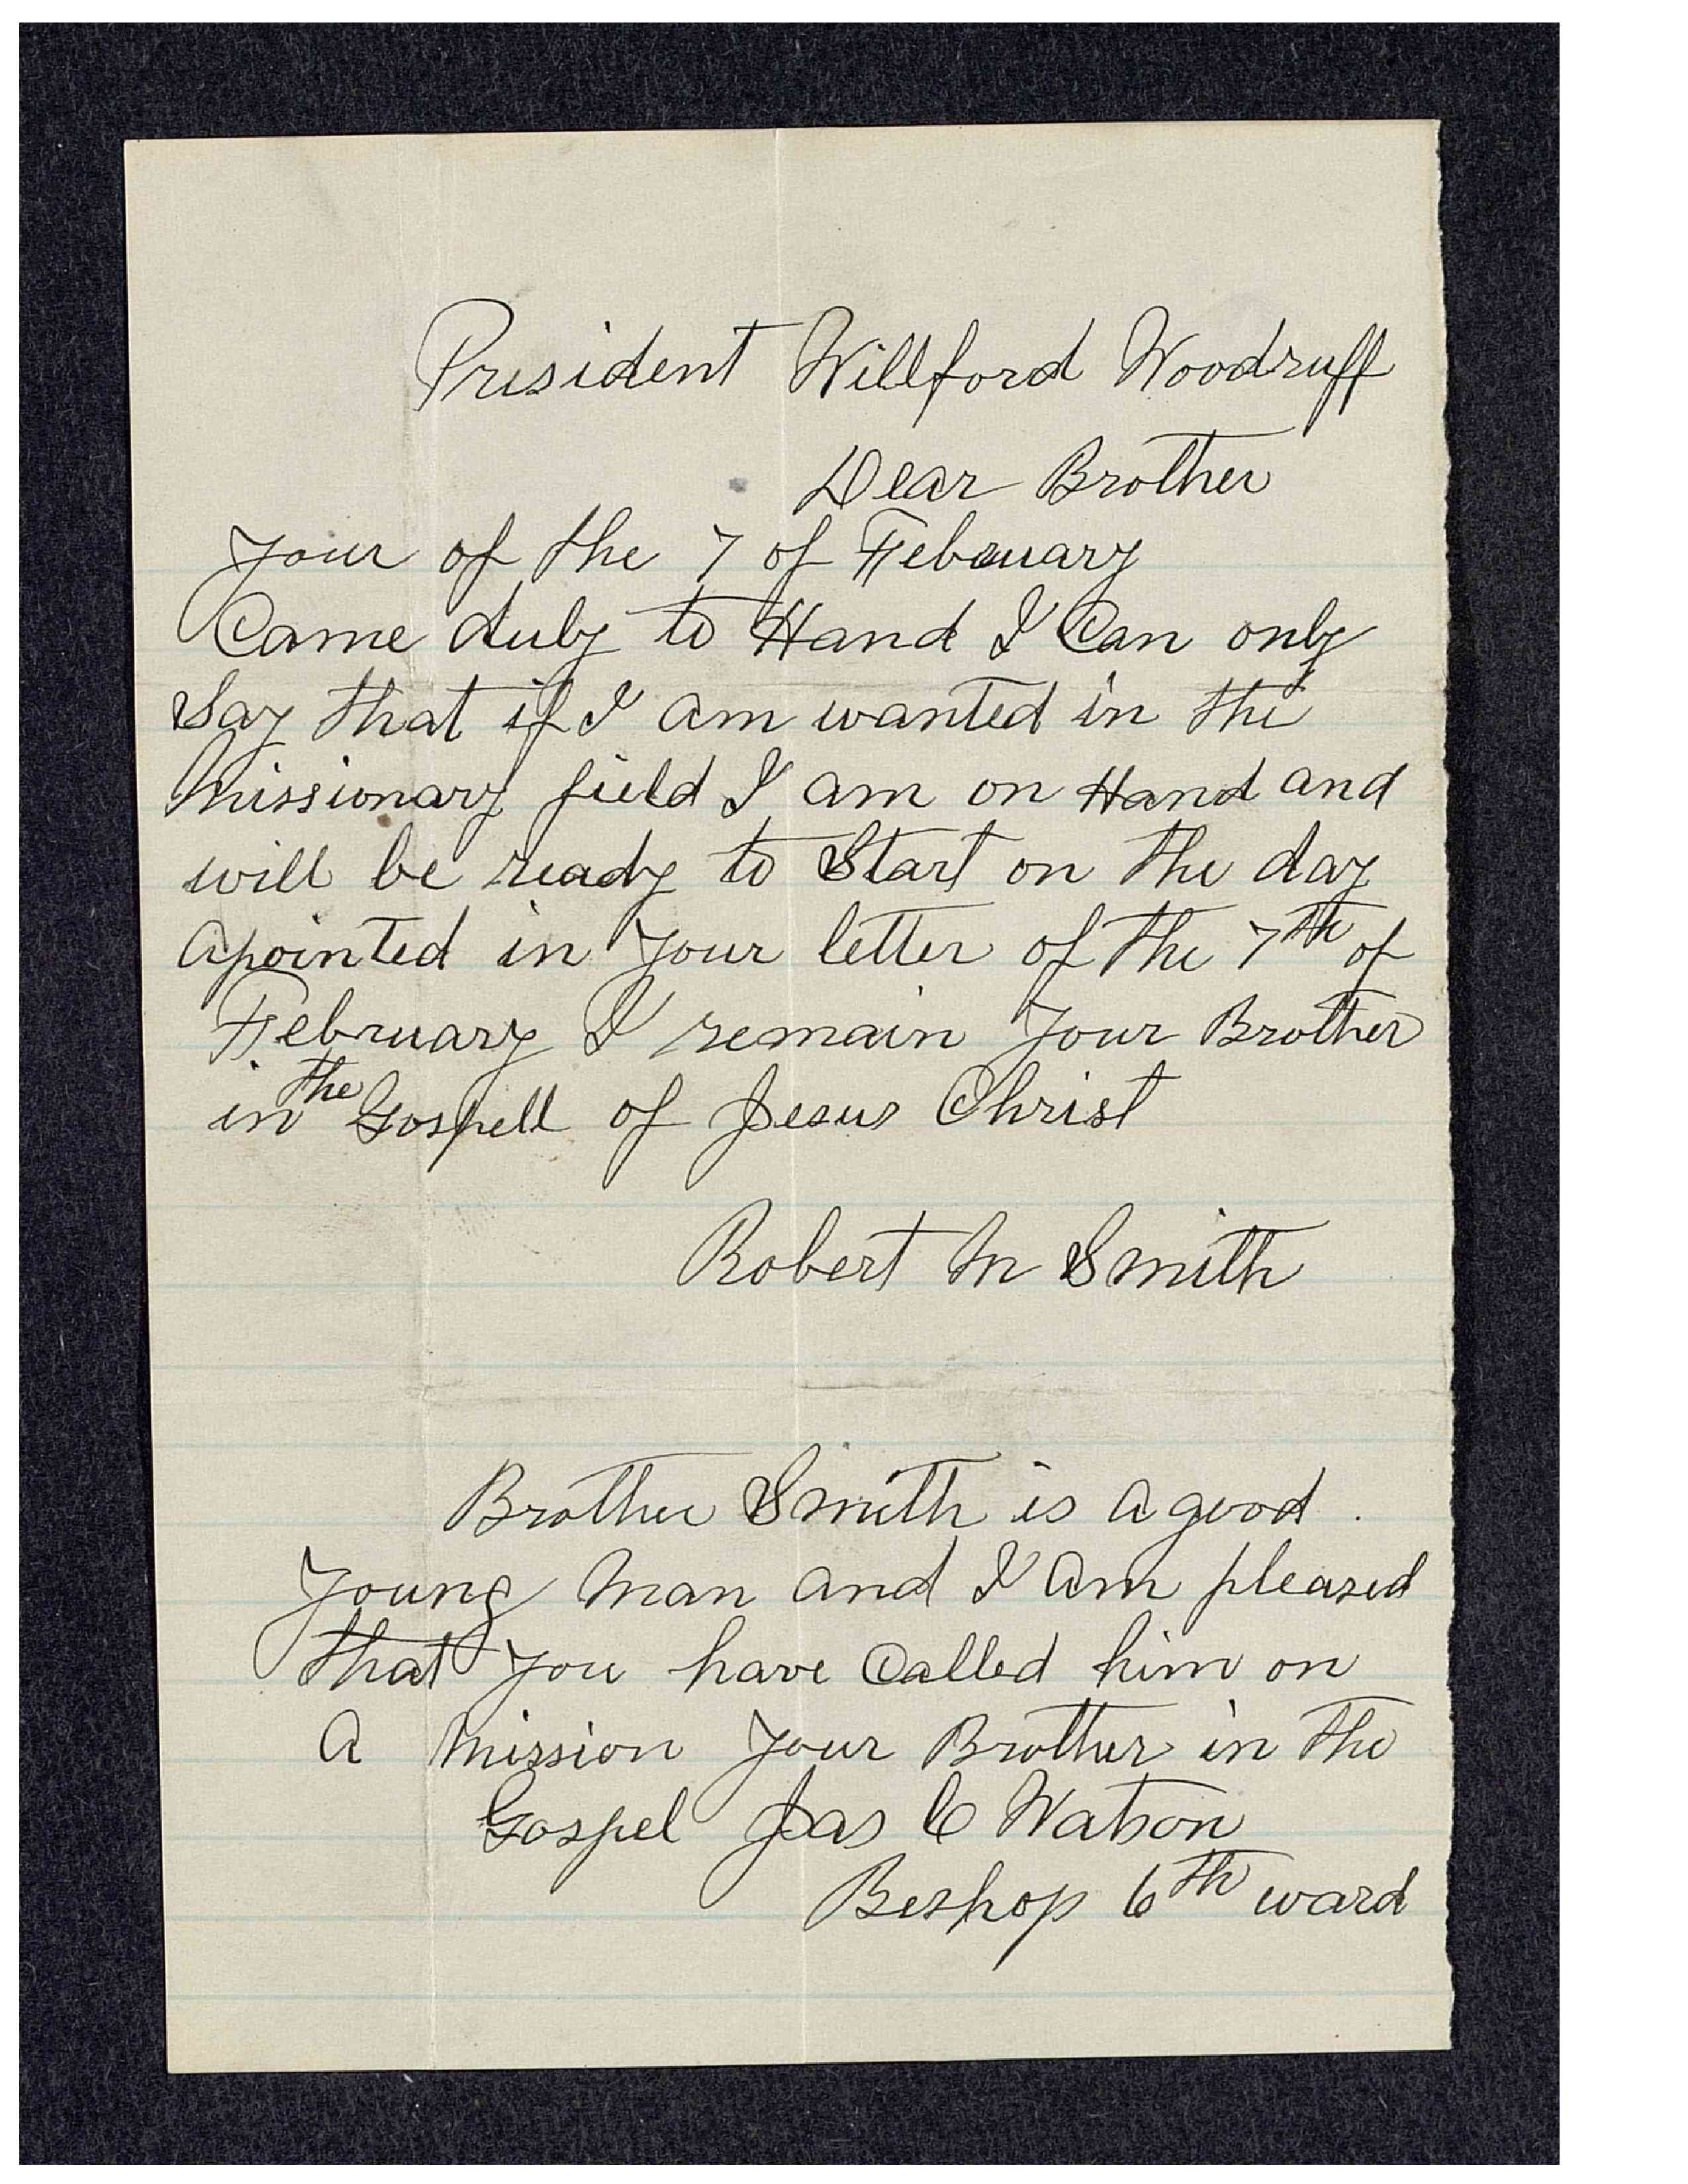 President Willford Woodruff
Dear Brother
Your of the 7 of February
Came duly to Hand I Can only
Say that if I am wanted in the
Missionary field I am on Hand and
will be ready to Start on the day
Apointed in Your letter of the 7th of
February I remain Your Brother
in the Gospell of Jesus Christ
Robert M Smith
Brother Smith is a good
Young Man and I Am pleased
that You have Called him on
A Mission Your Brother in the
Gospel Jas C Watson
Beshop 6th ward